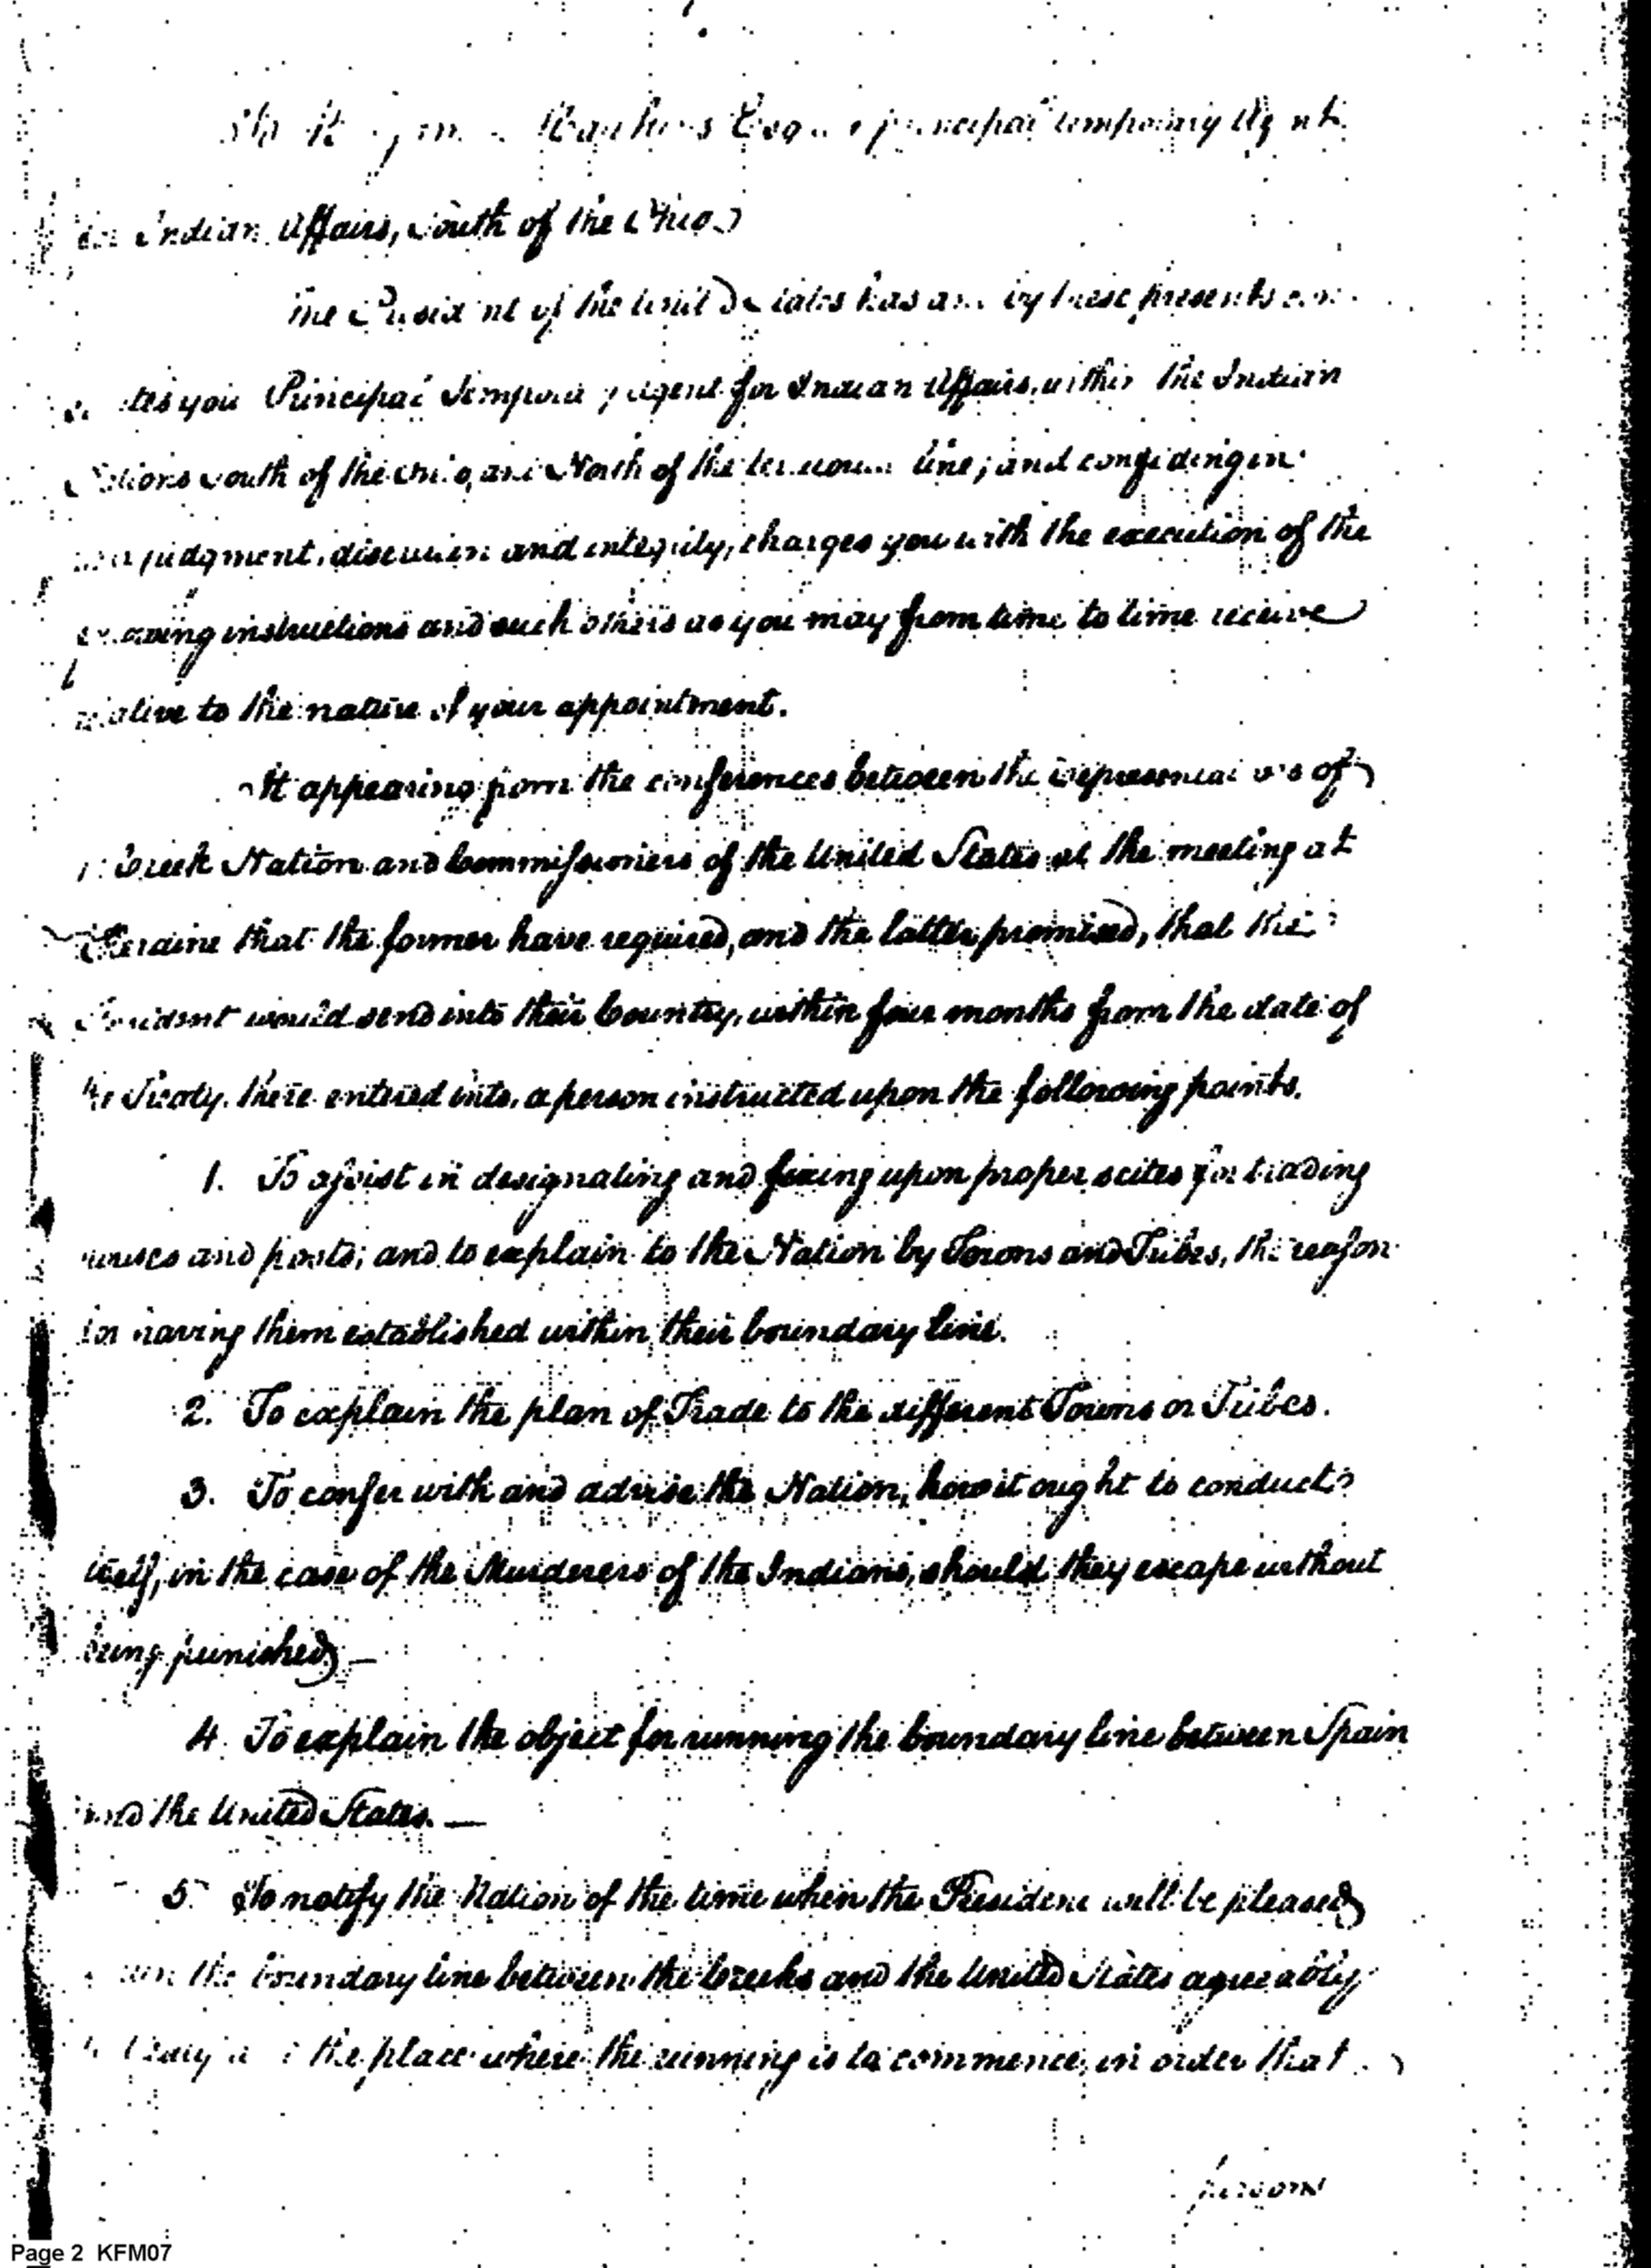 Hawkins Esq. principal temporary Agent
for Indian Affairs, South of the Ohio
The President of the United States has and by these presents
you Principal Temporary Agent for Indian Affairs, within the Indian
Nations South of the Ohio, and North of the line; and confiding in
your judgment, discretion and integrity, charges you with the execution of the
following instructions and such others as you may from time to time receive
relative to the nature of your appointment.
It appearing from the conferences between the Representatives of
the Creek Nation and Commissioners of the United States at the meeting at
Coleraine that the former have required, and the latter promised, that the
President would send into their Country, within four months from the date of
the Treaty, there entered into, a person instructed upon the following points.
1. To assist in designating and fixing upon proper scites for trading
houses and posts; and to explain to the Nation by Towns and Tribes, the reason
for having them established within their boundary line.
2. To explain the plan of Trade to the different Towns or Tribes.
3. To confer with and advise the Nation, how it ought to conduct
itself, in the case of the Murderers of the Indians, should they escape without
being punished —
4. To explain the object for running the boundary line between Spain
and the United States. —
5. To notify the Nation of the time when the President will be pleased
the boundary line between the Creeks and the United States agreeably
the place where the running is to commence, in order that
persons
Page 2 KFM07